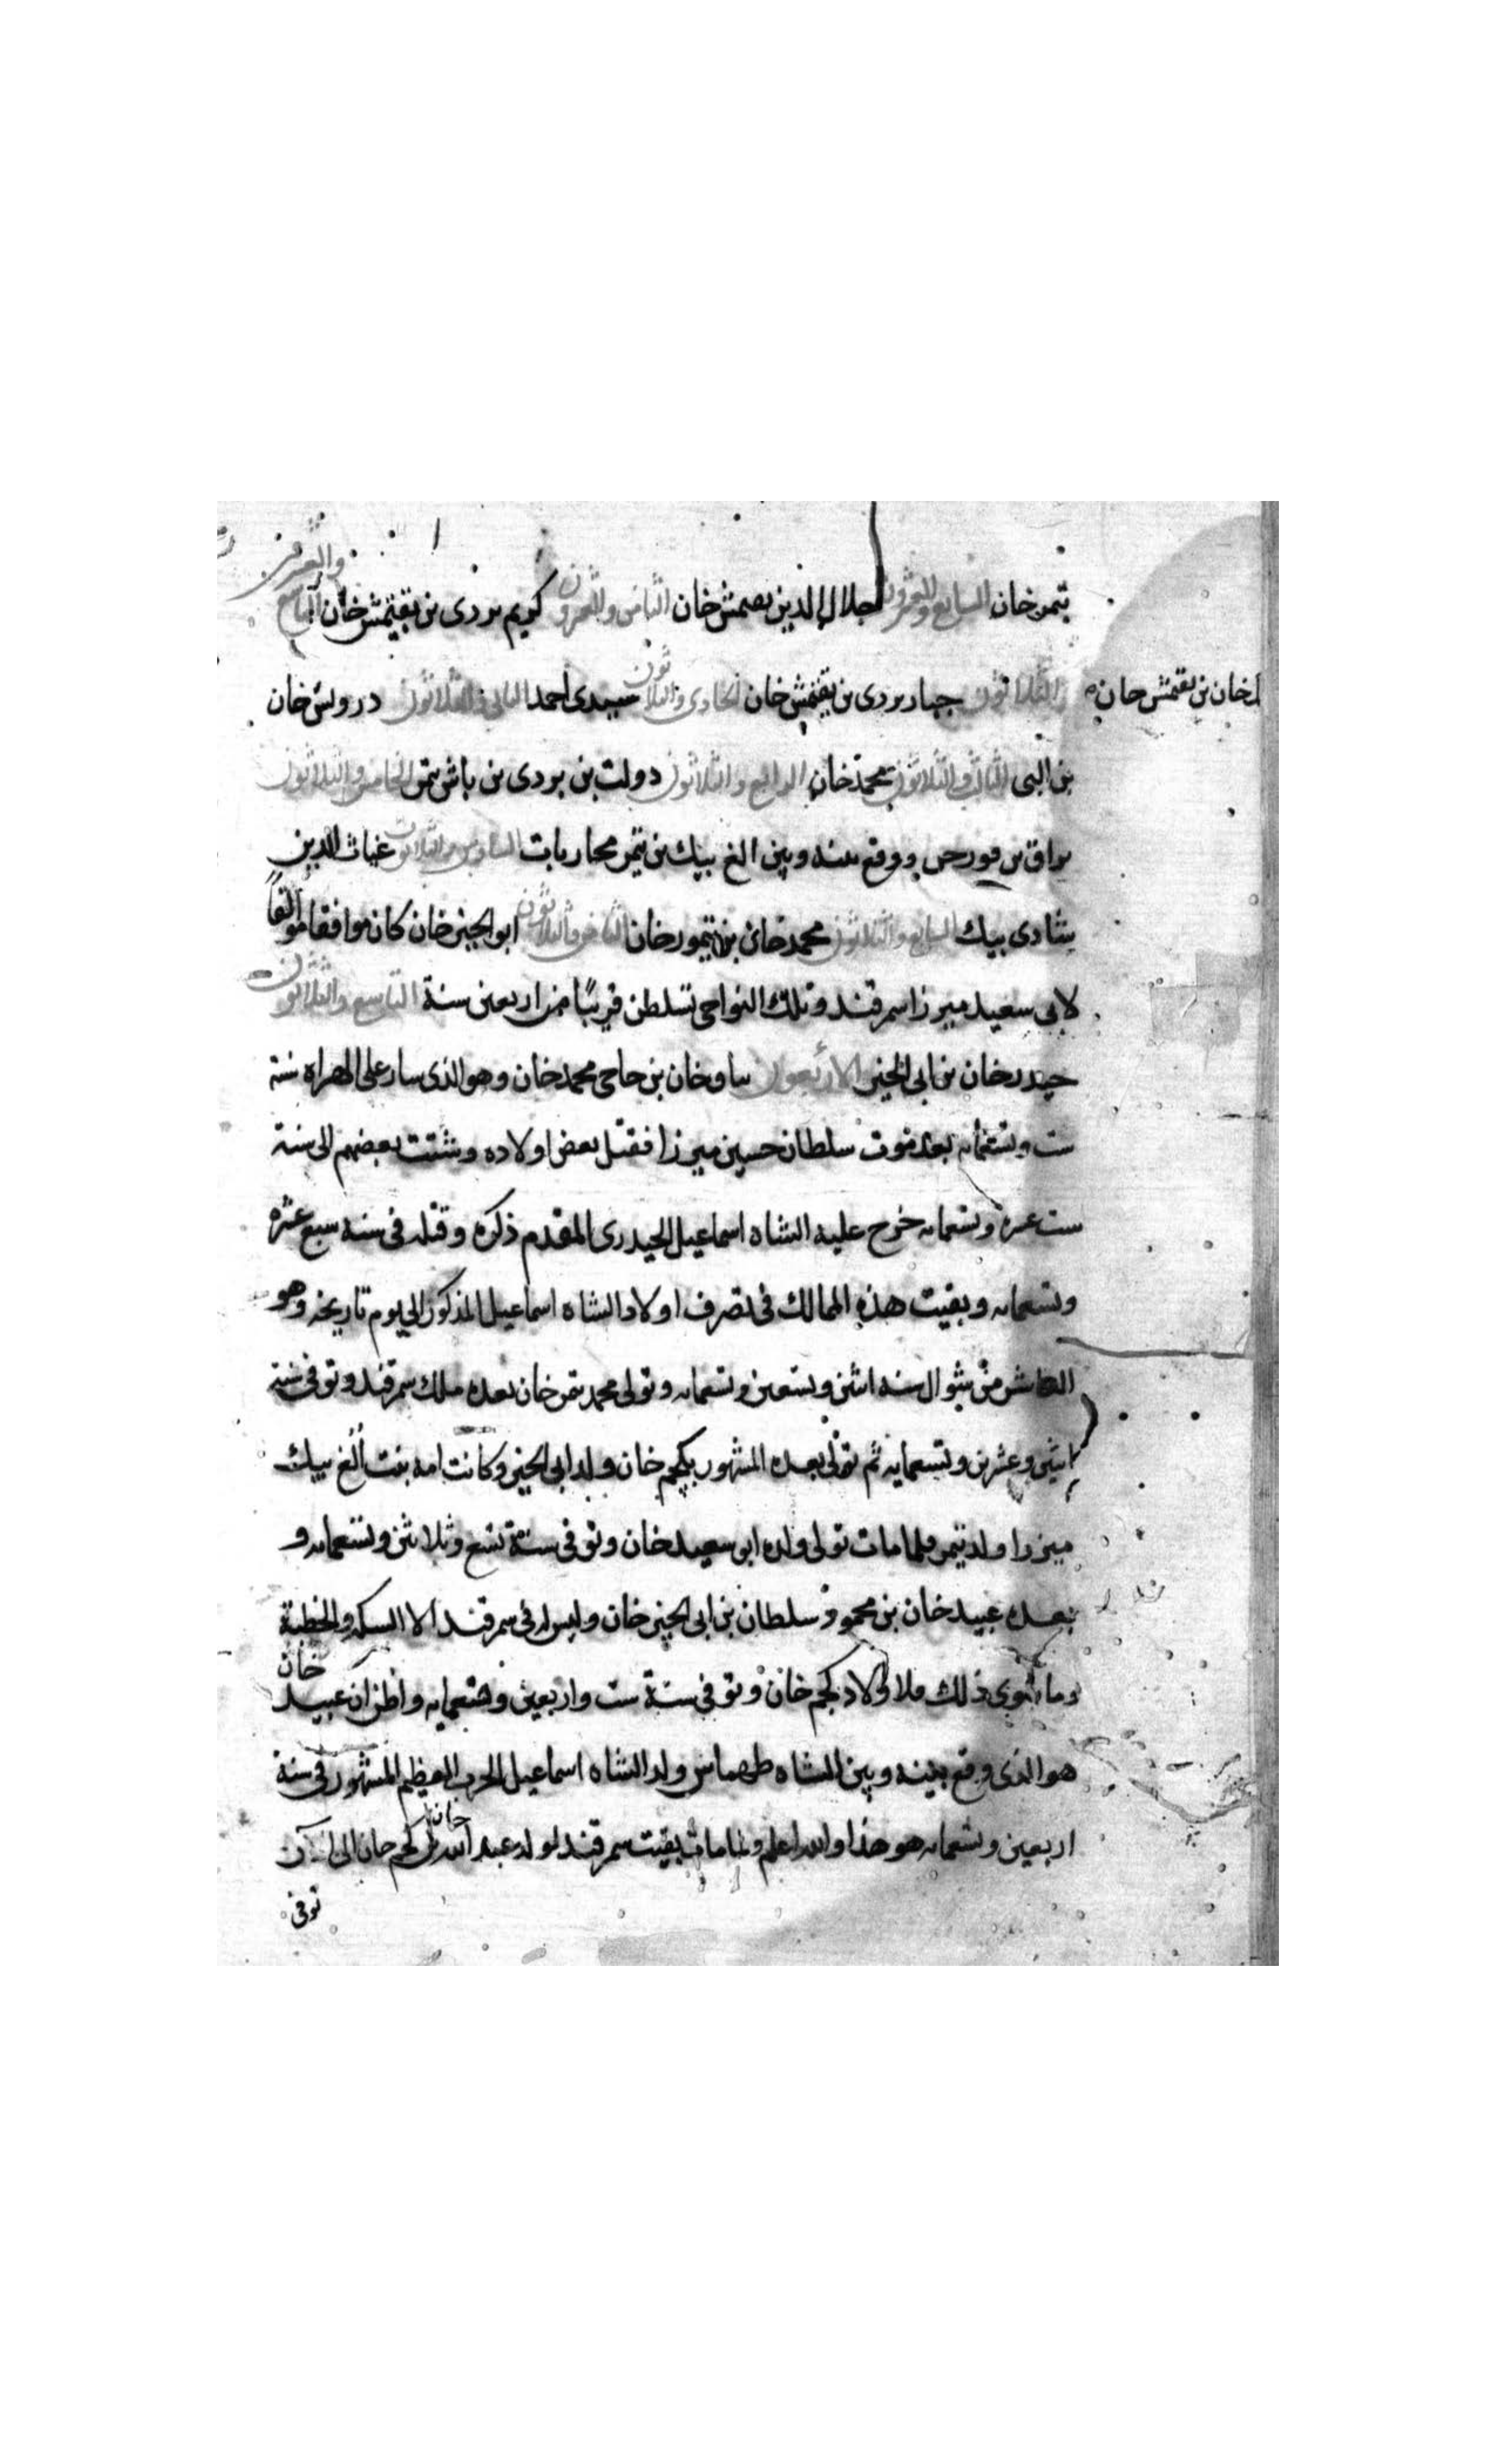 تيمر خان السابع والعشرون جلال الدين بن تقتمش خان الثامن والعشرون كريم بردى بن تقتمش خان التاسع والعشرون
خان بن تقتمش خان
الثلاثون جبار بردى بن تقتمش خان الحادى والثلاثون سيدى احمد الثانى والثلاثون درويش خان
بن البى الثالث والثلاثون محمد خان الرابع والثلاثون دولت بن بردى بن باش تمر الخامس والثلاثون
براق بن قورجى ووقع بينه وبين الغ بيك بن تيمر محاربات السادس والثلاثون غياث الدين
شادى بيك السابع والثلاثون محمد خان بن تيمور خان الثامن والثلاثون ابو الخير خان كان موافقا
لابى سعيد ميرزا سمرقند وتلك النواحى تسلطن قريبًا من اربعين سنة التاسع والثلاثون
حيدر خان بن ابى الخير الاربعون خان بن حاجى محمد خان وهو الذى سار على الهراه سنة
ست وتسعمايه بعد موت سلطان حسين ميرزا فقتل بعض اولاده وشتت بعضهم الى سنة
ست عشره وتسعمايه خرج عليه الشاه اسماعيل الحيدرى المقدم ذكره وقتله فى سنه سبع عشره
وتسعمايه وبقيت هذه الممالك فى تصرف اولاد الشاه اسماعيل المذكور الى يوم تاريخه وهو
العاشر من شوال سنه اثنين وتسعين وتسعمايه وتولى محمد تمر خان بعده ملك سمرقند وتوفى سنة
اثنين وعشرين وتسعمايه ثم تولى بعده المشهور بكجم خان ولد ابى الخير وكانت امه بنت ألغ بيك
ميرزا ولد تيمر فلما مات تولى ولده ابو سعيد خان وتوفى سنة تسع وثلاثين وتسعمايه و
بعده عبيد خان بن محمود سلطان بن ابى الخير خان وليس له فى سمرقند الا السكه والخطبة
وما سوى ذلك فلاولاد كجم خان وتوفى سنة ست واربعين وتسعمايه واظن ان عبيد خان
هو الذى وقع بينه وبين الشاه طهماس ولد الشاه اسماعيل الحرب العظيم المشهور فى سنة
اربعين وتسعمايه هو هذا والله اعلم ولما مات بقيت سمرقند لولد عبد الله خان بن كجم خان الى ان
توفى